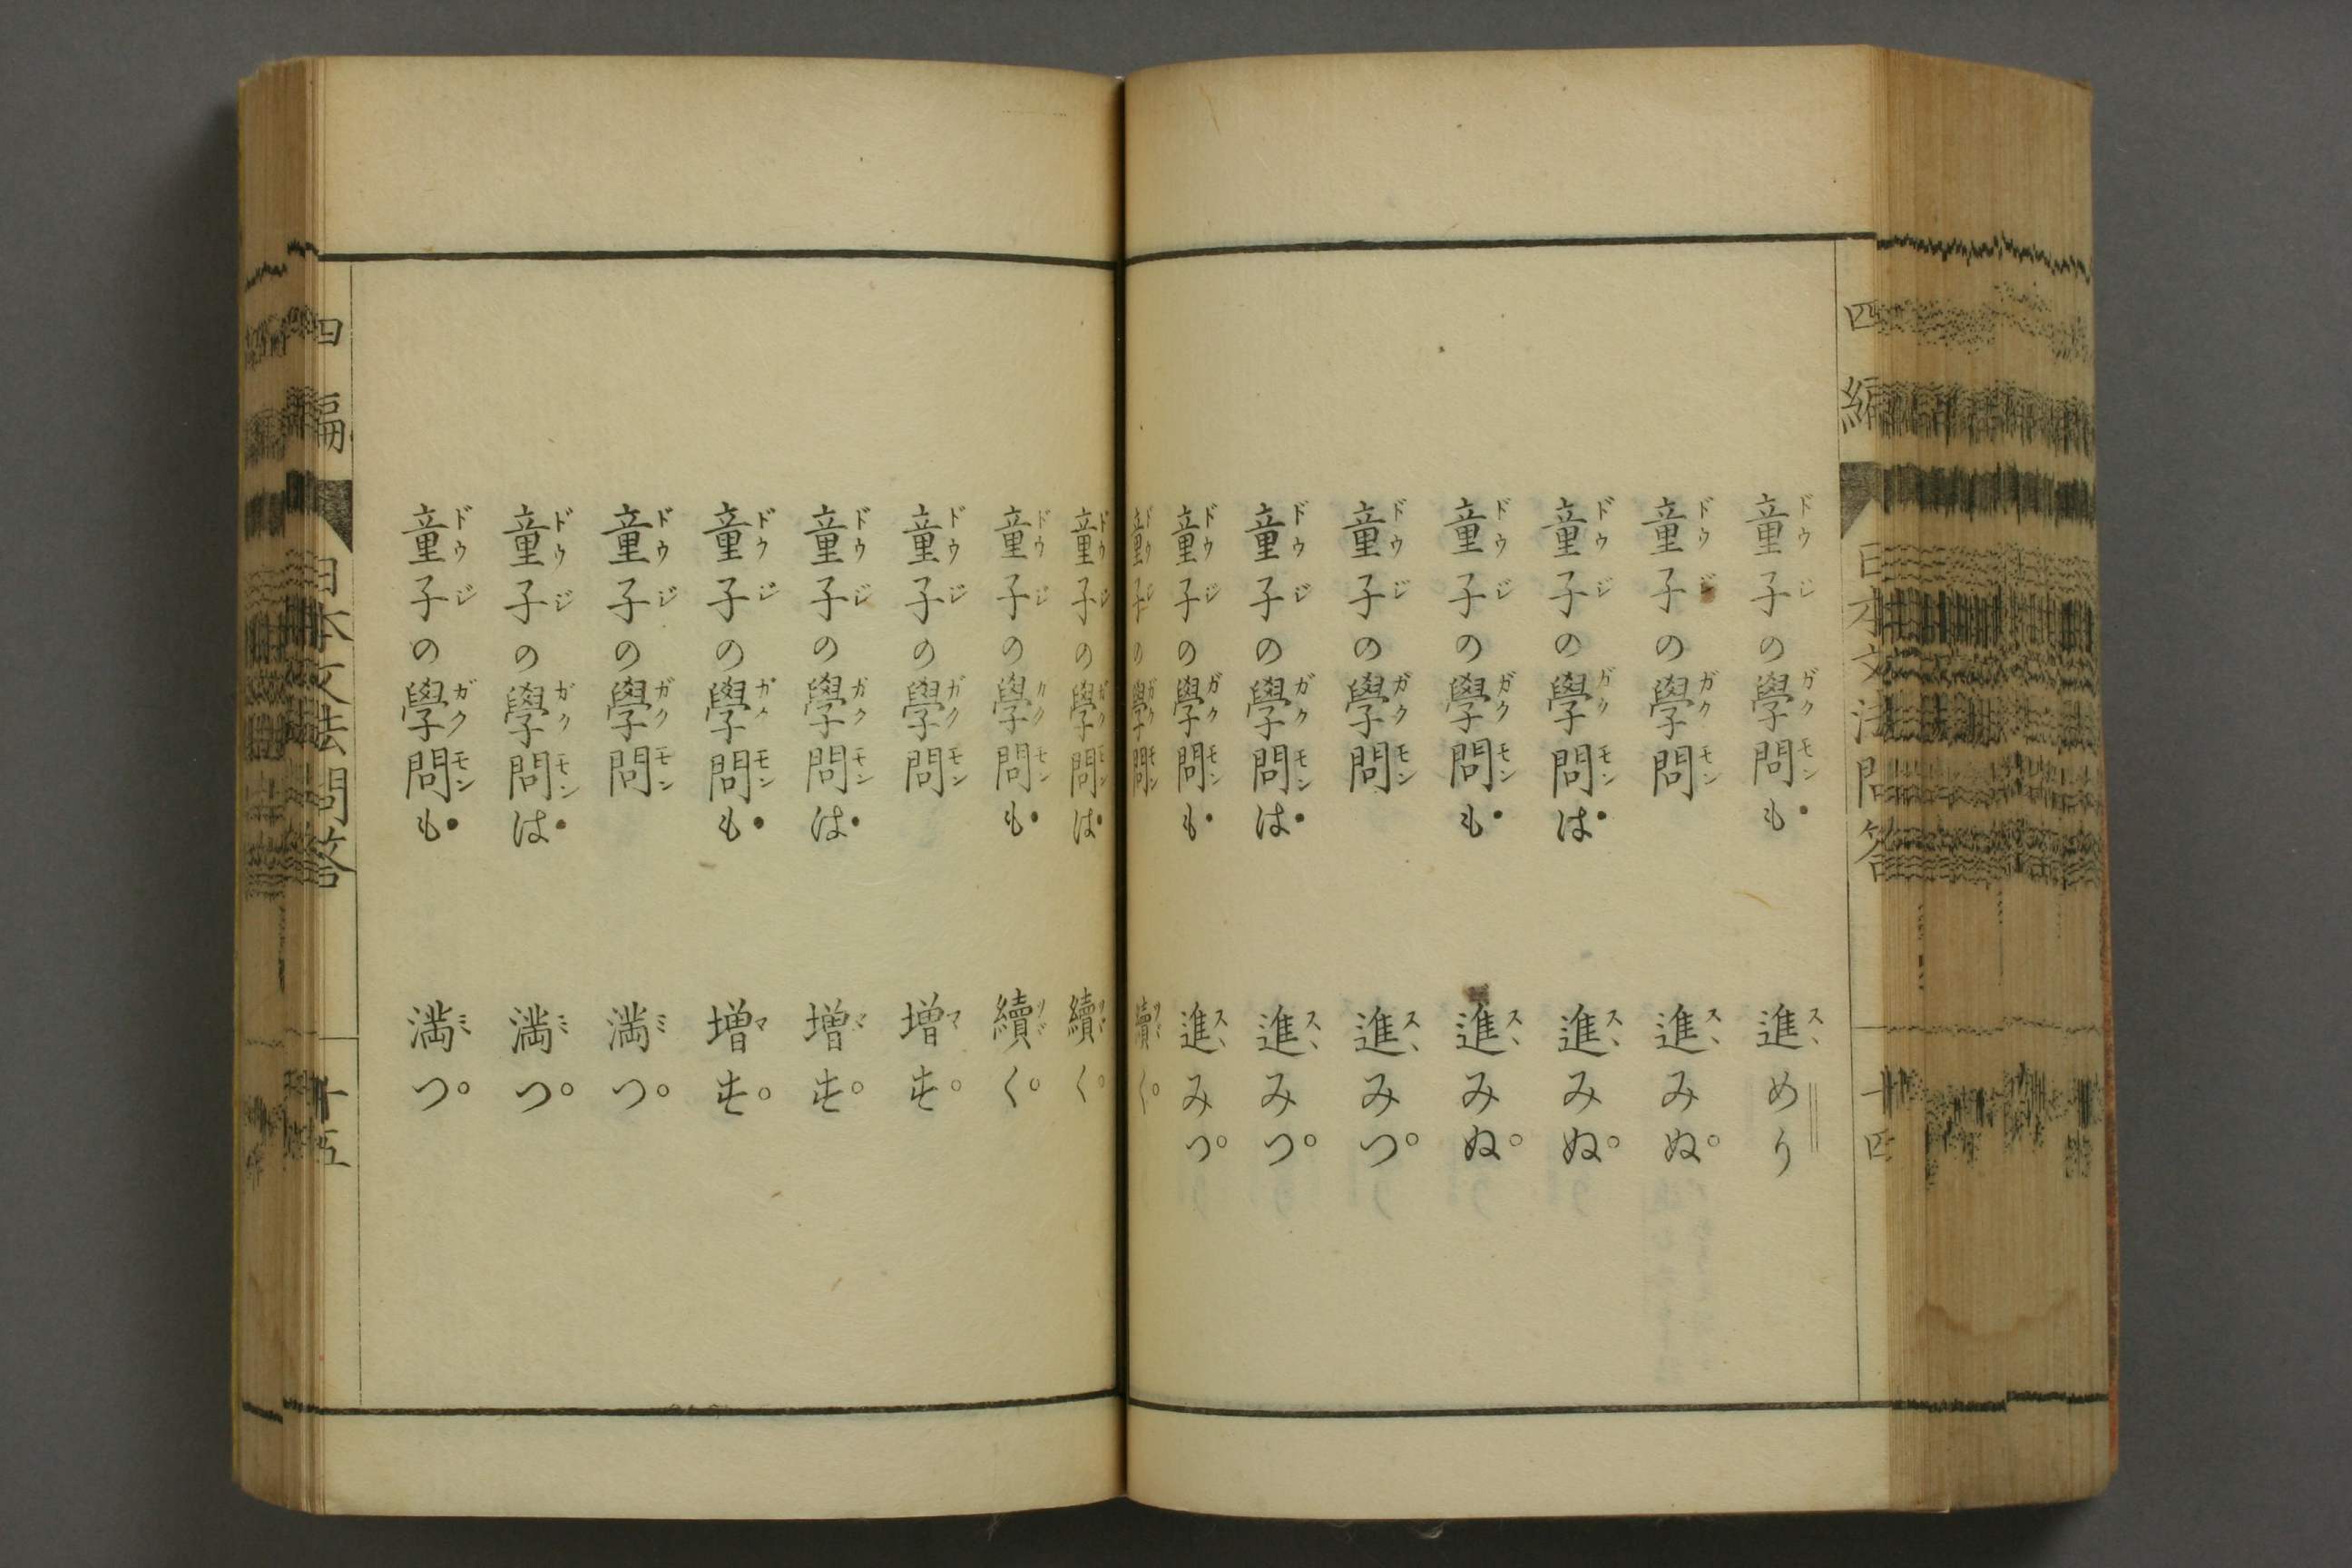 四編 日本文法問答 十四
童子の學問も 進めり
童子の學問 進みぬ
童子の學問は 進みぬ
童子の學問も 進みぬ
童子の學問 進みつ
童子の學問は 進みつ
童子の學問も 進みつ
童子の學問 續く
童子の學問は 續く
童子の學問も 續く
童子の學問 増す
童子の學問は 増す
童子の學問も 増す
童子の學問 満つ
童子の學問は 満つ
童子の學問も 満つ
四編 日本文法問答 十五